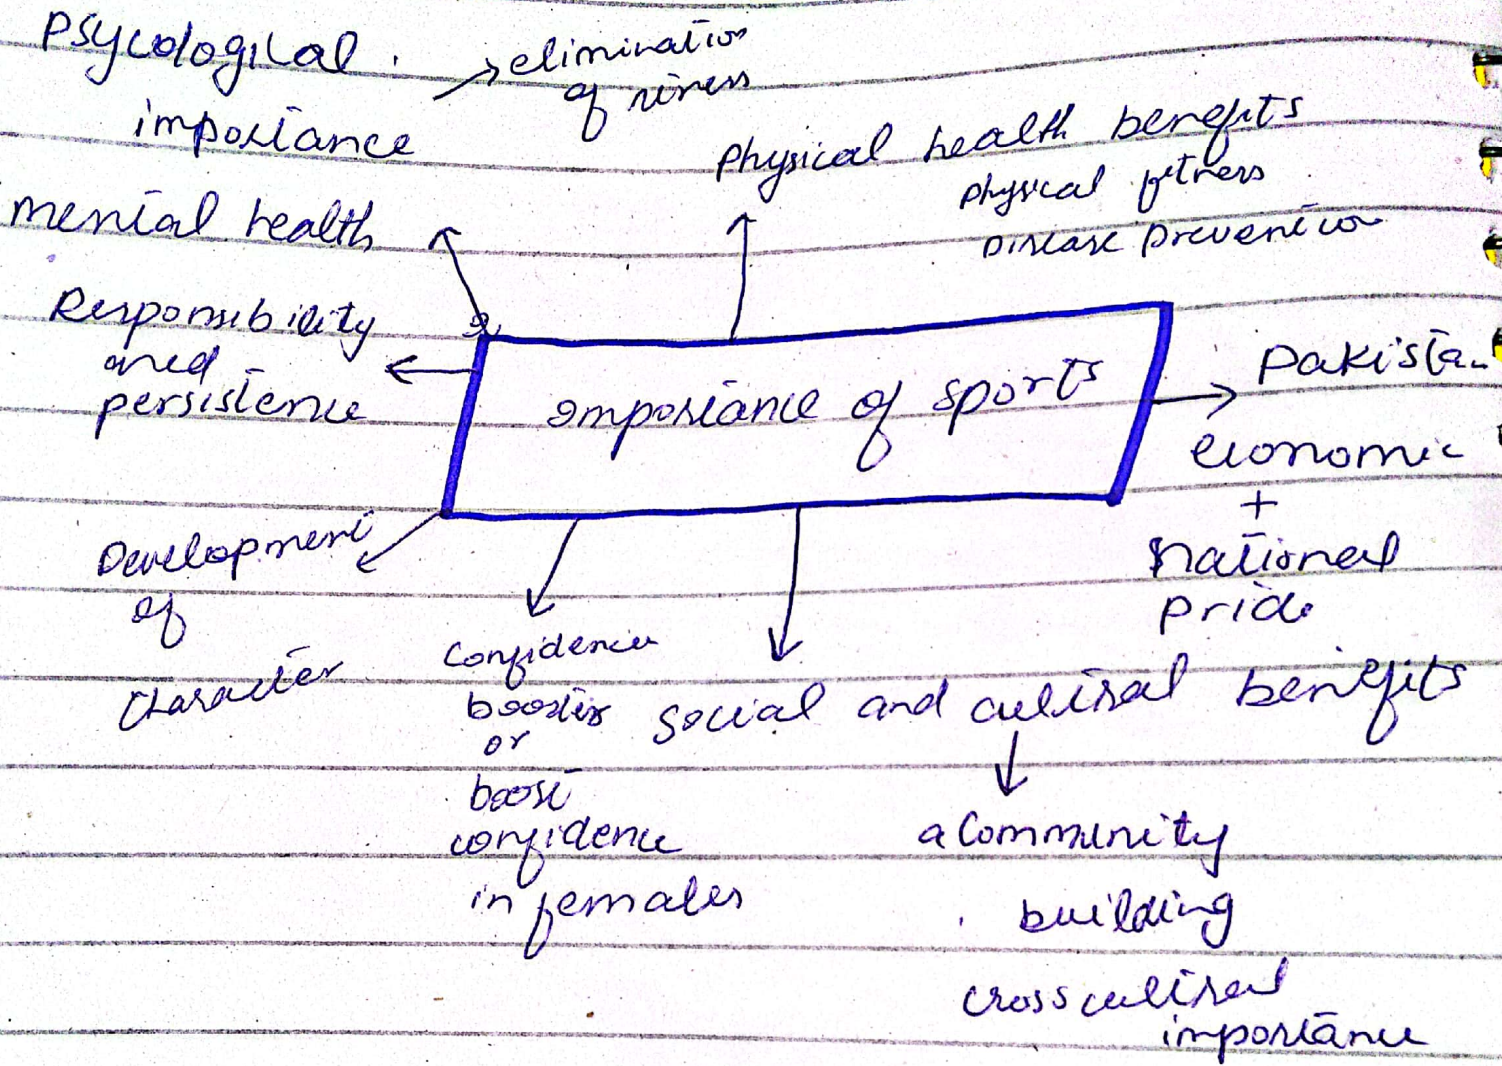 Psycological
importance
mental health
→ elimination
of
physical health benefits
physical fitness
Disease prevention
Responsibility
and
persistence
importance of sports
Pakistan
economic
+
national
pride
Development
of
character
Confidence
booster
or
boost
confidence
in females
social and cultural benefits
a community
building
cross cultural
importance